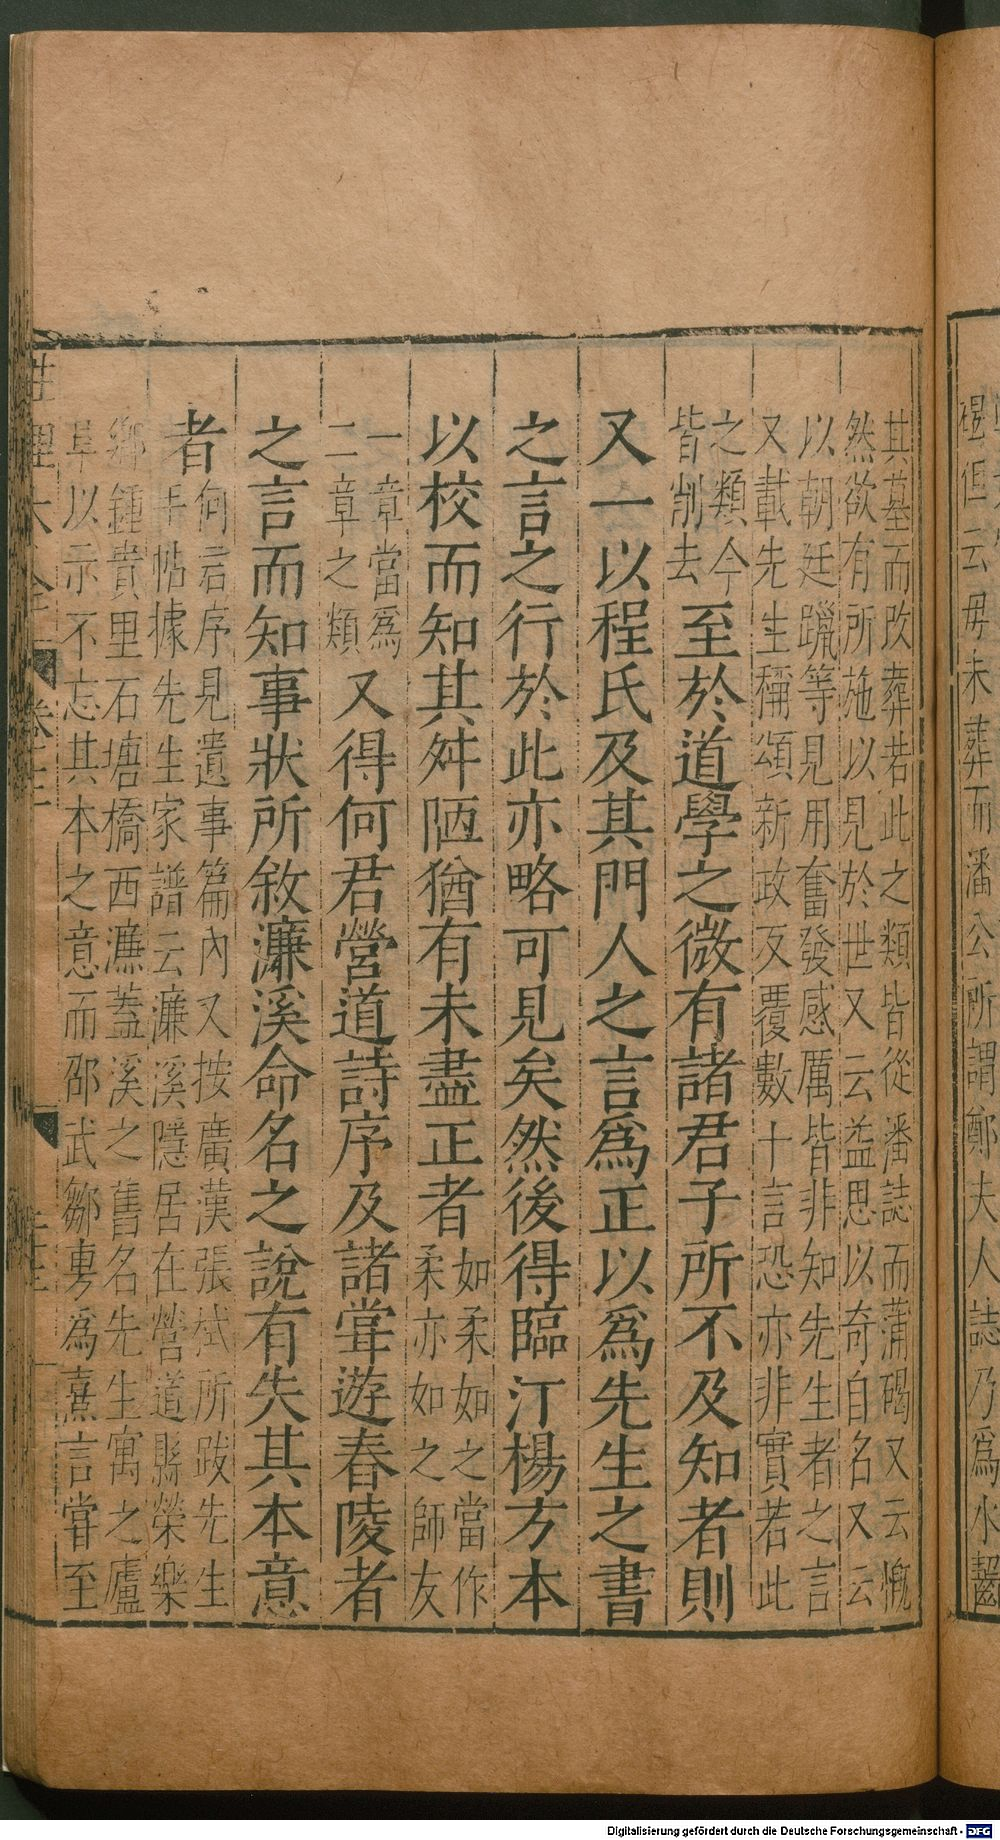 其墓而改葬若此之類皆從潘誌而蒲碣又云慨
然欲有所施以見於世又云益思以奇自名又云
以朝廷躐等見用奮發感厲皆非知先生者之言
又載先生稱頌新政反覆數十言恐亦非實若此
之類今
皆削去
至於道學之微有諸君子所不及知者則
又一以程氏及其門人之言爲正以爲先生之書
之言之行於此亦略可見矣然後得臨汀楊方本
以校而知其舛陋猶有未盡正者
如柔如之當作
柔亦如之師友
一章當爲
二章之類
又得何君營道詩序及諸甞遊舂陵者
之言而知事狀所敘濂溪命名之說有失其本意
者
何君序見遺事篇內又按廣漢張栻所跋先生
手帖據先生家譜云濂溪隱居在營道縣榮樂
鄉鍾貴里石塘橋西濂蓋溪之舊名先生寓之廬
阜以示不忘其本之意而邵武鄒旉爲熹言甞至
性理大全
卷之
碣但云毋未葬而潘公所謂鄭夫人誌乃爲水齧
Digitalisierung gefördert durch die Deutsche Forschungsgemeinschaft - DFG